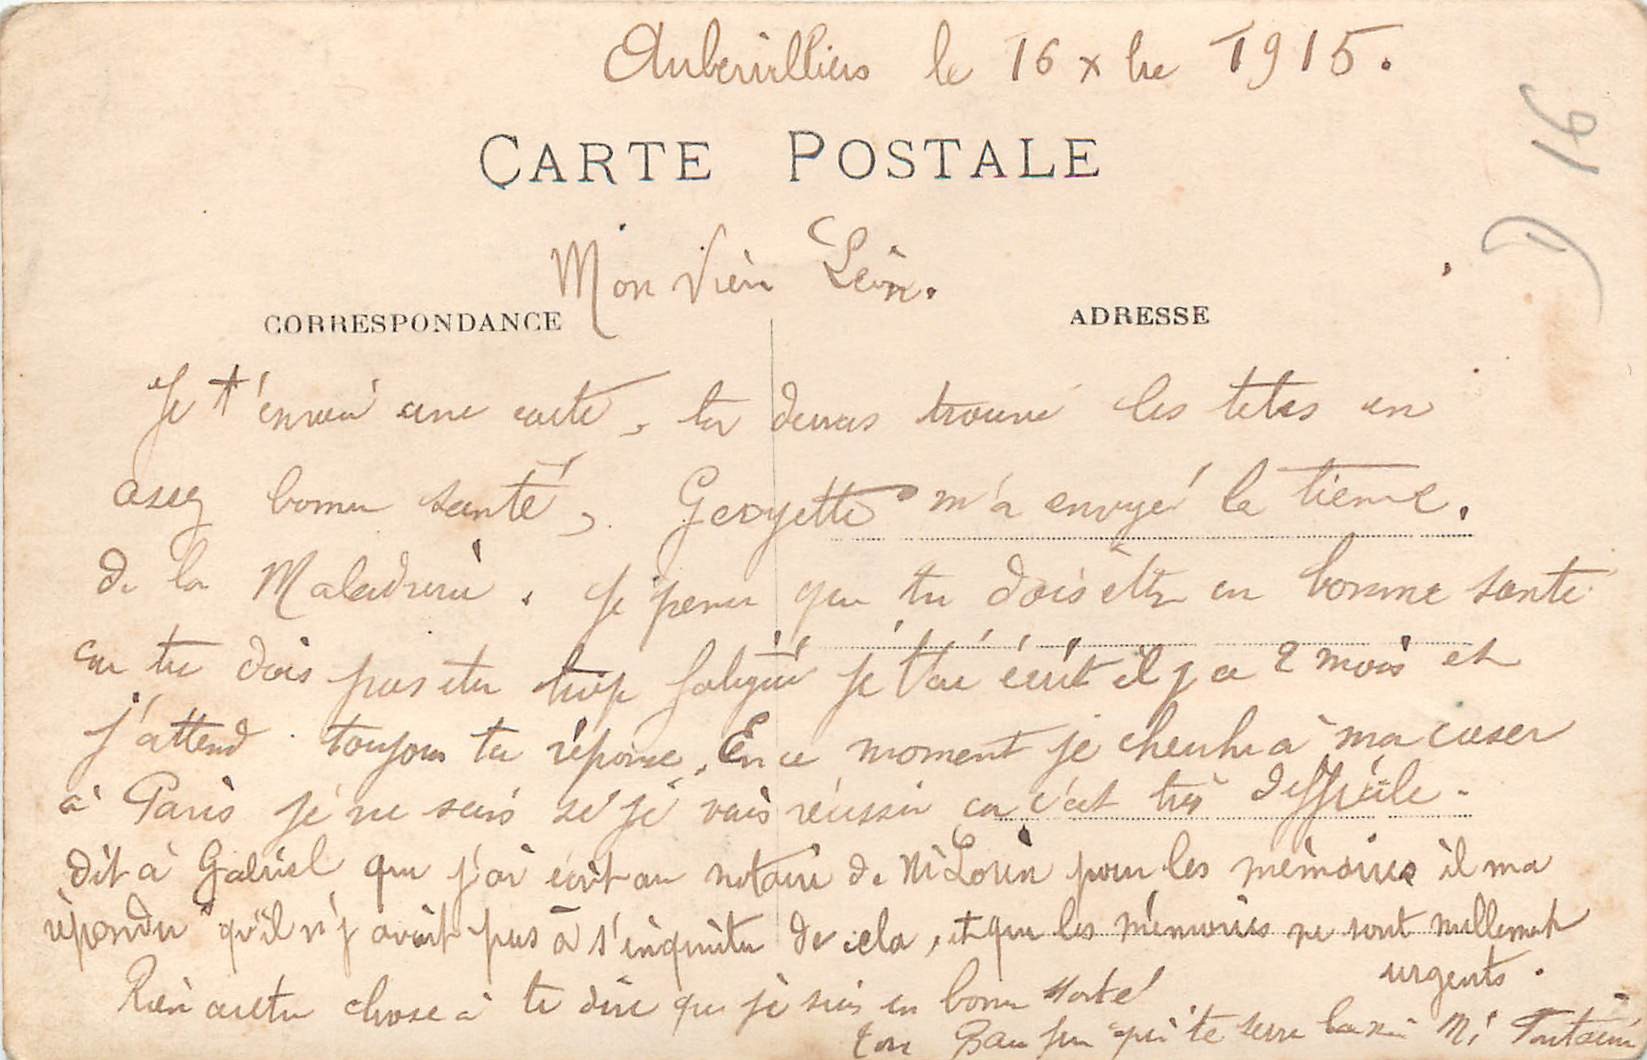 Aubervilliers le 16 xbre 1915.
16
CARTE POSTALE
Mon Vieu Léon.
CORRESPONDANCE
ADRESSE
Je t'envoie une carte, tu devras trouvé les tetes en
assez bonne santé, Georgette m'a envoyé la tienne.
de la Maladrerie. Je pense que tu dois être en bonne santé
car tu dois pas etre trop fatigué je t'ai écrit il y a 2 mois et
j'attend toujour ta réponse. En ce moment je cherche a ma caser
à Paris je ne sais si je vais réussir car c'est très difficile.
dit à Gabriel que j'ai écrit au notaire de Mr Lorin pour les mémoires il ma
répondu qu'il n'y avait pas à s'inquiéter de cela, et que les mémoires ne sont nullement
urgents.
Rien autre chose à te dire que je suis en bonne santé
ton Beau qui te serre la main Mr Fontaine